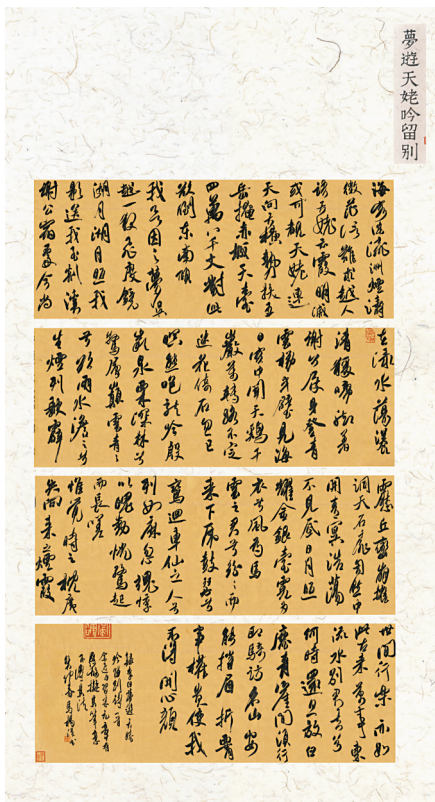 夢遊天姥吟留別
海客談瀛洲煙濤
微茫信難求越人
語天姥雲霞明滅
或可覩天姥連
天向天橫勢拔五
岳掩赤城天臺
四萬八千丈對此
欲倒東南傾
我欲因之夢吳
越一夜飛度鏡
湖月湖月照我
影送我至剡溪
謝公宿處今尚
在淥水蕩漾
清猿啼腳著
謝公屐身登青
雲梯半壁見海
日空中聞天雞千
巖萬轉路不定
迷花倚石忽已
暝熊咆龍吟殷
巖泉栗深林兮
驚層巔雲青青
兮欲雨水澹澹兮
生煙列缺霹
靂丘巒崩摧
洞天石扉訇然中
開青冥浩蕩
不見底日月照
耀金銀臺霓為
衣兮風為馬
雲之君兮紛紛而
來下虎鼓瑟兮
鸞迴車仙之人兮
列如麻忽魂悸
以魄動怳驚起
而長嗟
惟覺時之枕席
失向來之煙霞
世間行樂亦如
此古來萬事東
流水別君去兮
何時還且放白
鹿青崖間須行
即騎訪名山安
能摧眉折腰
事權貴使我
不得開心顏
錄李白夢遊天姥
吟留別詩一首